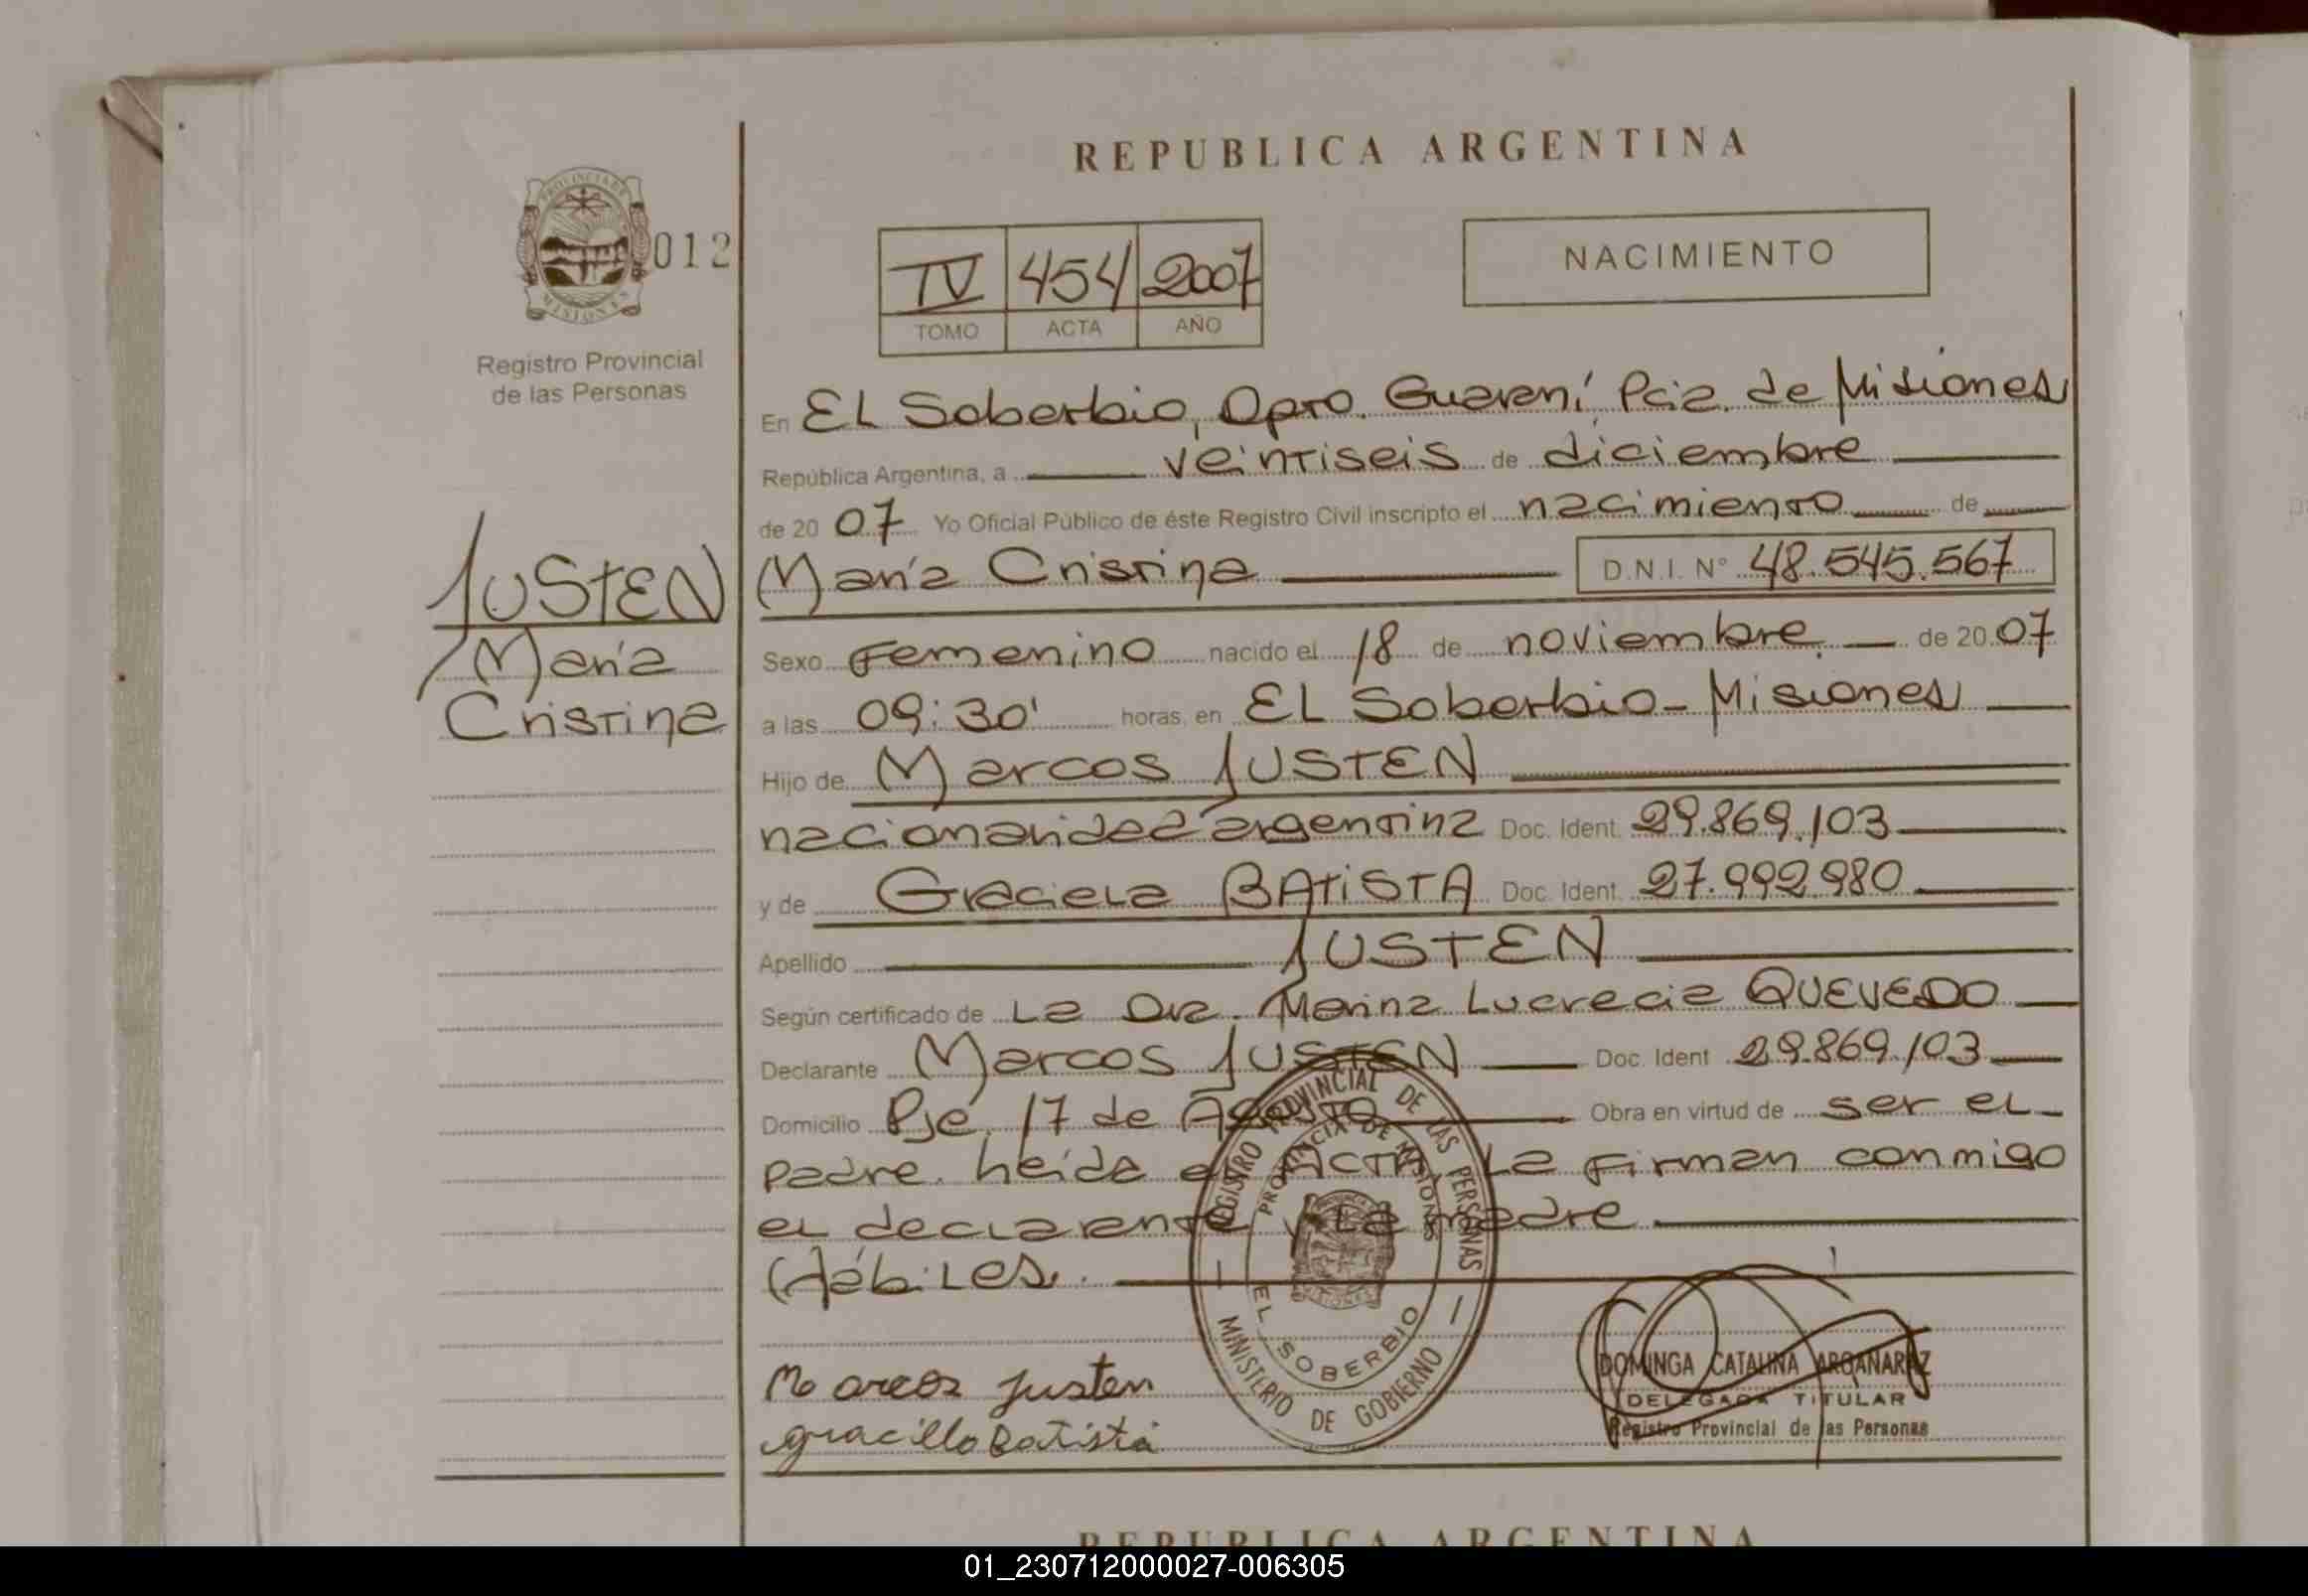 REPUBLICA ARGENTINA
PROVINCIA DE
MISIONES
012
Registro Provincial
de las Personas
IV 454 2007
TOMO ACTA AÑO
NACIMIENTO
En EL Soberbio, Dpto. Guaraní, Pcia. de Misiones
República Argentina, a veintiseis de diciembre
de 20 07 Yo Oficial Público de éste Registro Civil inscripto el nacimiento de
María Cristina D.N.I. N° 48.545.567
JUSTEN
María
Cristina
Sexo Femenino nacido el 18 de noviembre de 20 07
a las 09:30' horas, en EL Soberbio - Misiones
Hijo de Marcos JUSTEN
nacionalidad argentina Doc. Ident. 29.869.103
y de Graciela BATISTA Doc. Ident. 27.992.980
Apellido JUSTEN
Según certificado de La Dra. Marina Lucrecia QUEVEDO
Declarante Marcos JUSTEN Doc. Ident. 29.869.103
Domicilio Pje. 17 de Agosto Obra en virtud de ser el
padre. heida el ACTA, La Firman conmigo
el declarante y La madre
(Hábiles.
REGISTRO PROVINCIAL DE LAS PERSONAS
PROVINCIA DE MISIONES
EL SOBERBIO
MINISTERIO DE GOBIERNO
Marcos Justen
Batista
DOMINGA CATALINA ARGAÑARAZ
DELEGADA TITULAR
Registro Provincial de las Personas
REPUBLICA ARGENTINA
01_230712000027-006305